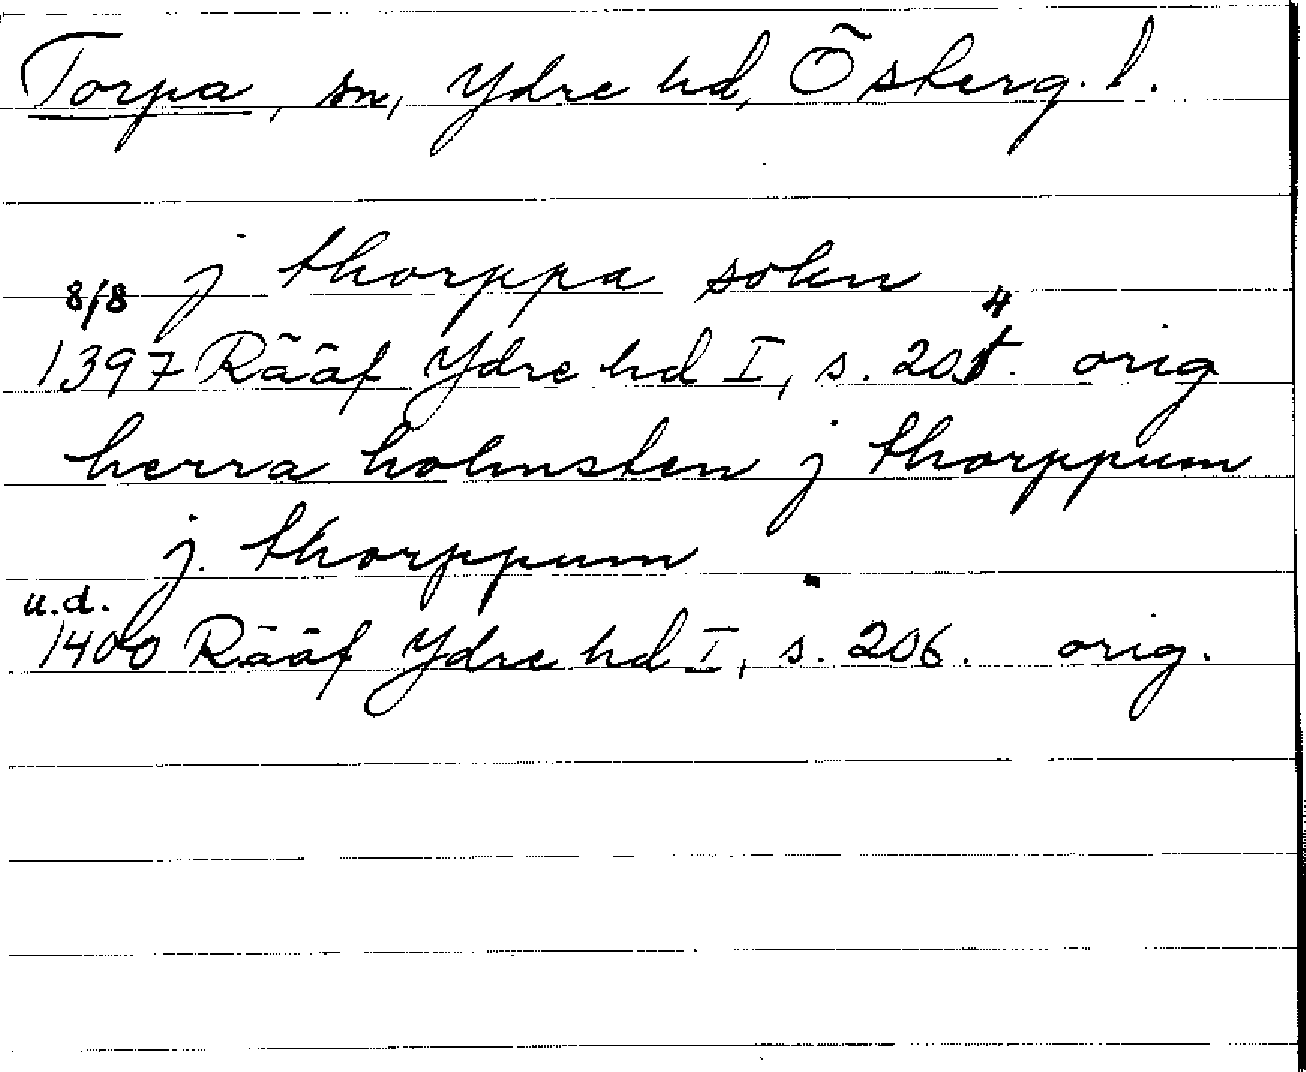 Torpa, sn, Ydre hd, Österg. l.
j thorppa sokn
8/8 4
1397 Rääf Ydre hd I, s. 205. orig
herra holmsten j thorppum
j. thorppum
u.d.
1400 Rääf Ydre hd I, s. 206. orig.